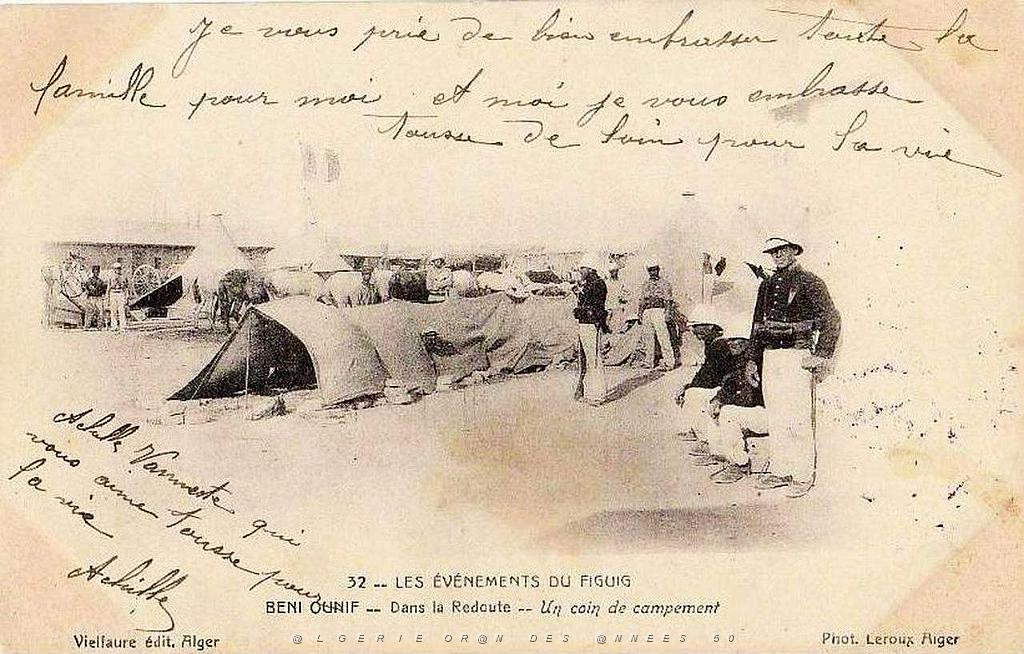 Je vous prie de bien embrasser toute la
famille pour moi et moi je vous embrasse
tousse de loin pour la vie
Achille Vanneste qui
vous aime tousse pour
la vie
Achille
32 -- LES ÉVÉNEMENTS DU FIGUIG
BENI OUNIF -- Dans la Redoute -- Un coin de campement
Vielfaure édit. Alger
@LGERIE OR@N DES @NNEES 60
Phot. Leroux Alger